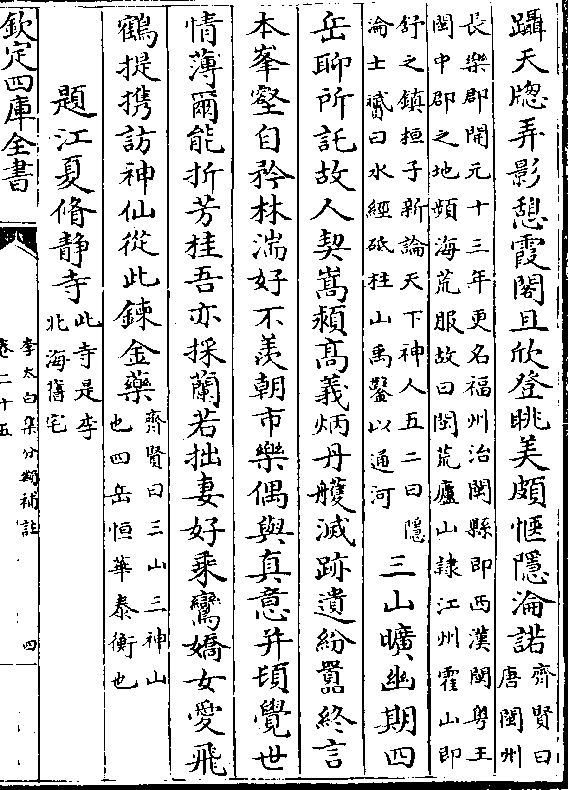 躡天牕弄影憩霞閣且欣登眺美頗愜隱淪諾齊賢曰唐閩州
長樂郡開元十三年更名福州治閩縣即西漢閩粤王
閩中郡之地頻海荒服故曰閩荒廬山隷江州霍山即
舒之鎮桓子新論天下神人五二曰隱
淪士贇曰水經砥柱山禹鑿以通河
三山曠幽期四
岳聊所託故人契嵩潁高義炳丹雘滅跡遺紛囂終言
本峯壑自矜林湍好不羨朝市樂偶與真意并頓覺世
情薄爾能折芳桂吾亦採蘭若拙妻好乘鸞嬌女愛飛
鶴提攜訪神仙從此鍊金藥齊賢曰三山三神山
也四岳恒華泰衡也
題江夏脩静寺此寺是李
北海舊宅
欽定四庫全書
李太白集分類補註
卷二十五
四